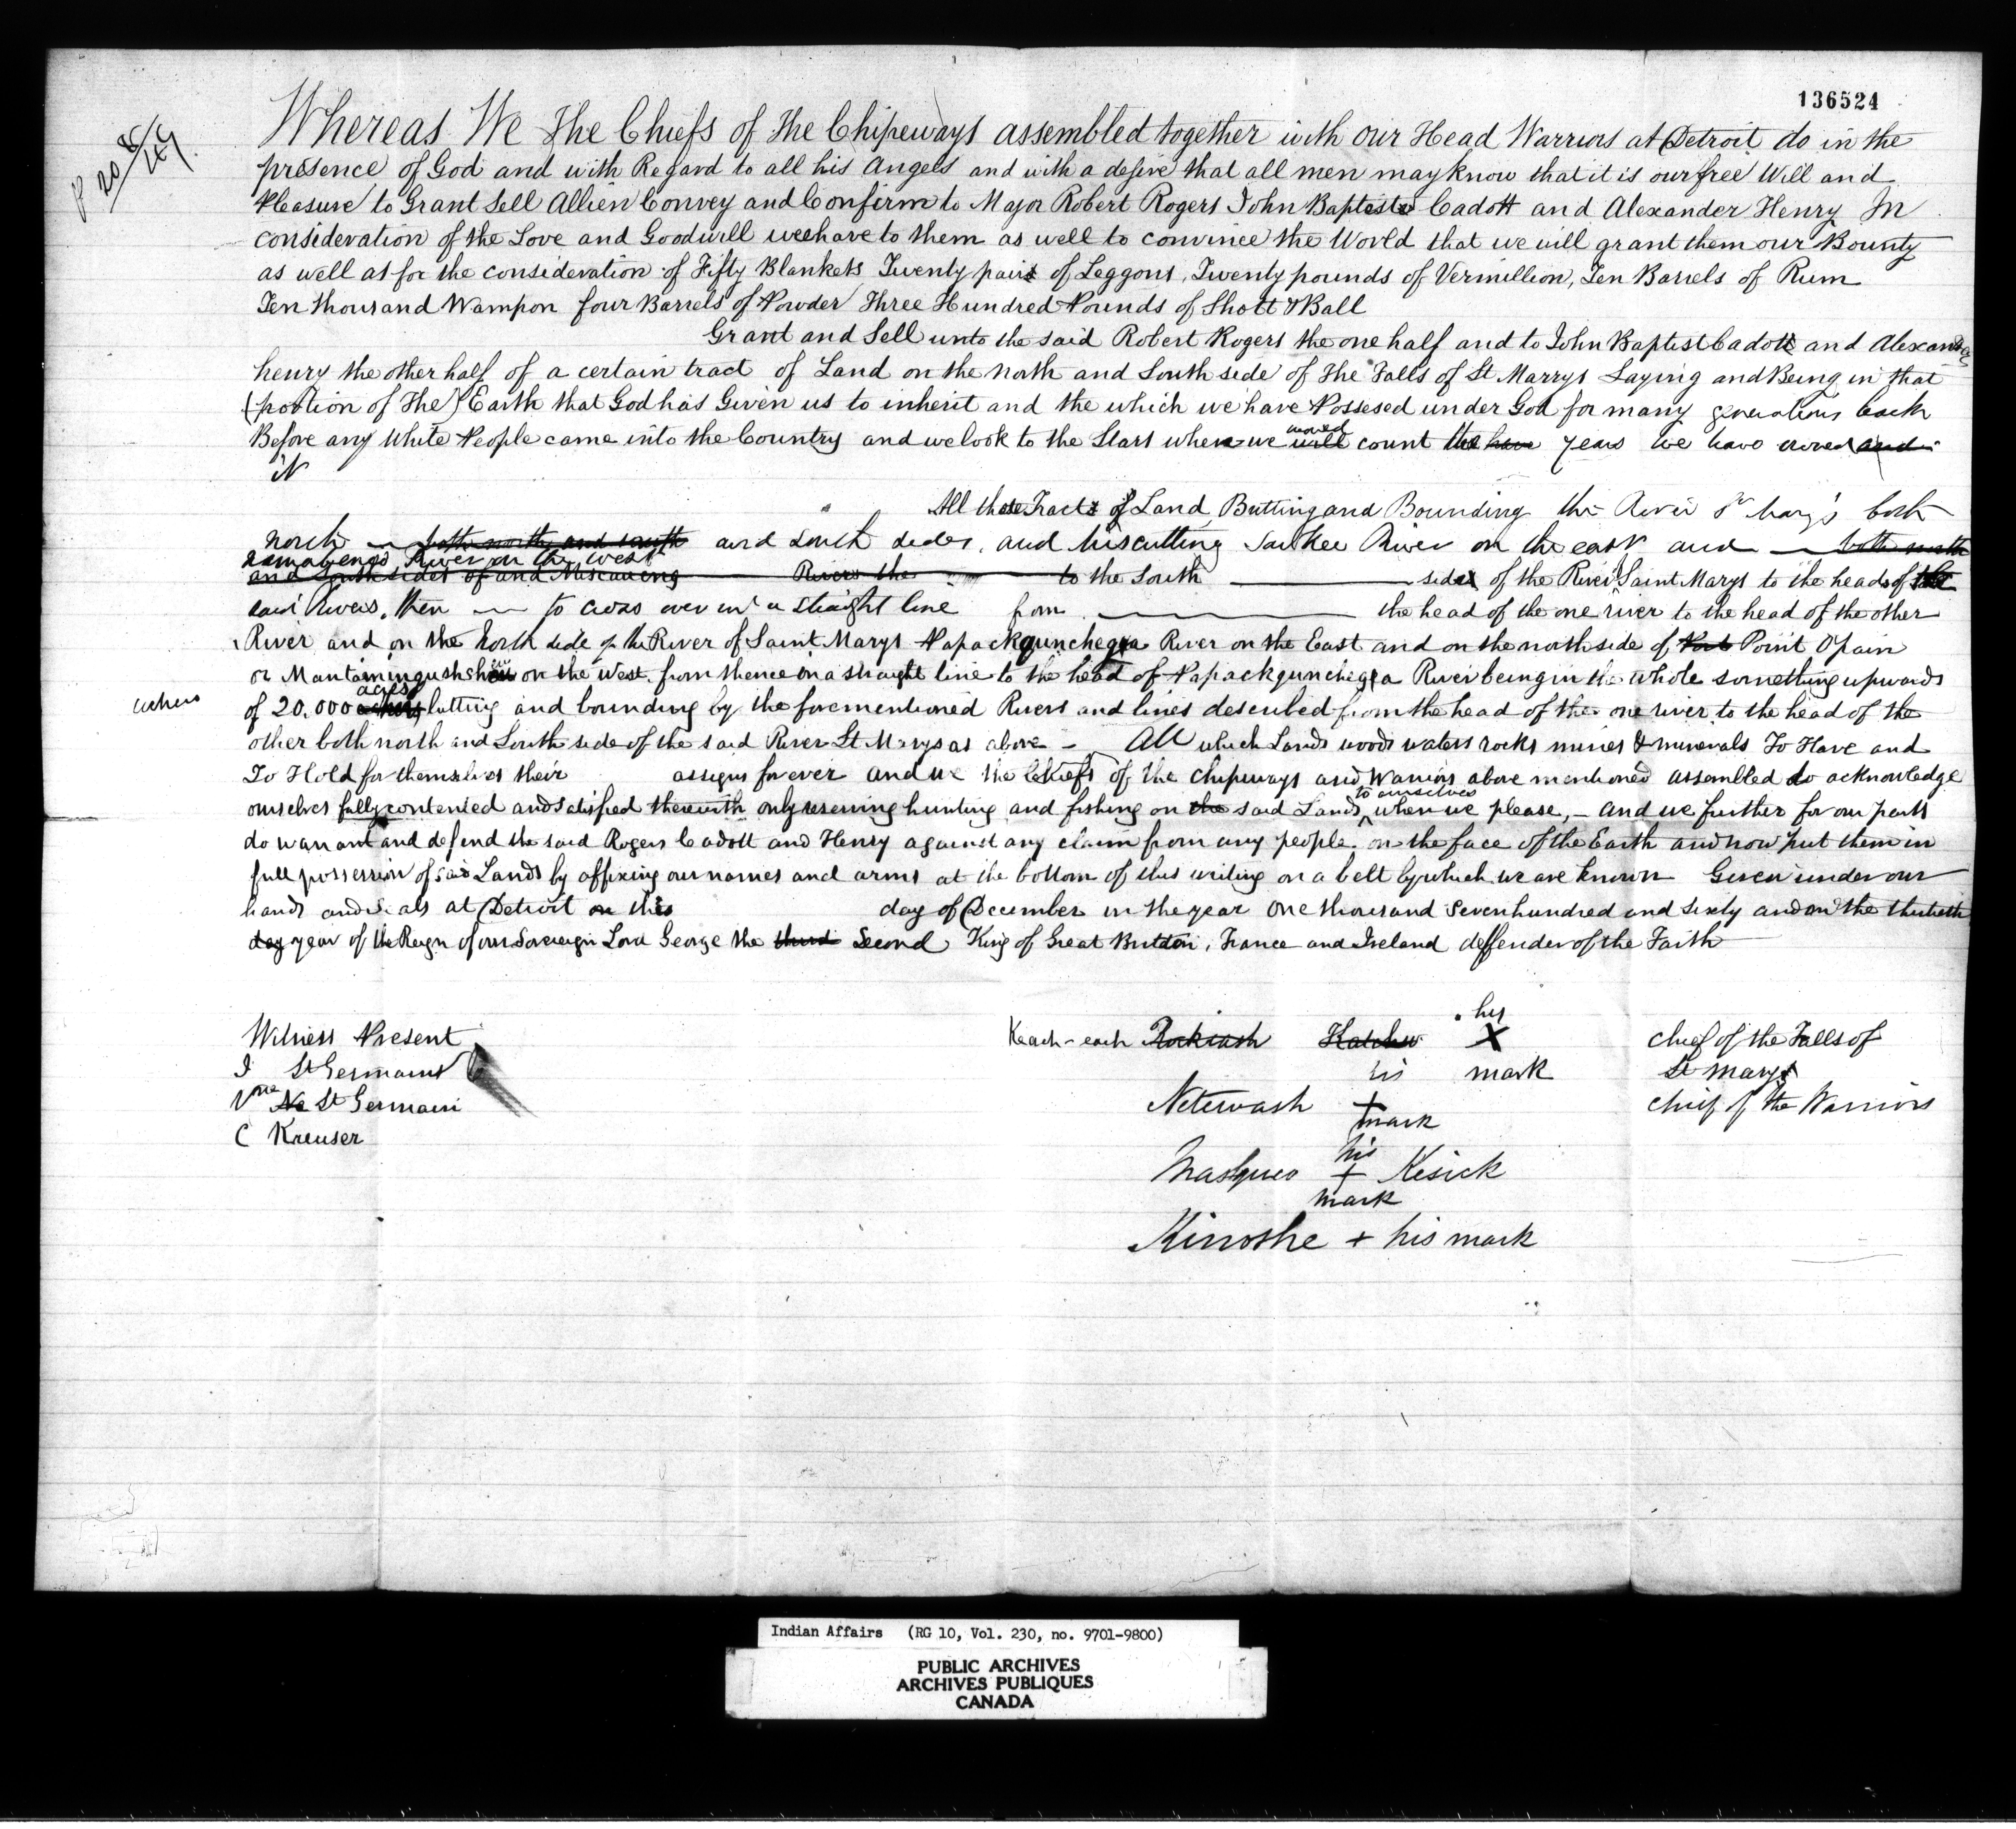 136524
P 20 8/49.
Whereas We The Chiefs of The Chipeways assembled together with our Head Warriors at Detroit do in the
presence of God and with Regard to all his Angels and with a desire that all men may know that it is our free Will and
Pleasure to Grant Sell Allien Convey and Confirm to Major Robert Rogers John Baptiste Cadott and Alexander Henry In
consideration of the Love and Goodwill wee have to them as well to convince the World that we will grant them our Bounty
as well as for the consideration of Fifty Blankets Twenty pairs of Leggons, Twenty pounds of Vermillion, Ten Barrels of Rum
Ten thousand Wampon four Barrels of Powder Three Hundred Pounds of Shott & Ball
Grant and Sell unto the said Robert Rogers the one half and to John Baptist Cadott and Alexander
henry the other half of a certain tract of Land on the north and South side of The Falls of St Marrys Laying and Being in that
(portion of The) Earth that God has Given us to inherit and the which we have Possesed under God for many generations back
Before any White People came into the Country and we look to the Stars when we would will count the have years we have owned and
it
All those Tracts of Land Butting and Bounding the River St Mary's both
north both north and south and South sides, and Miscutting Saukee River on the east and both north
River on the west
and South sides of and Miscaueng River the to the South sides of the River Saint Marys to the heads of the
said Rivers, then to cross over in a straight line from the head of the one river to the head of the other
River and on the north side of the River of Saint Marys Papackqunchegra River on the East and on the north side of Point Opain
or on the West. from thence on a straight line to the head of Papackqunchegra River being in the whole something upwards
achers
of 20.000 acres butting and bounding by the forementioned Rivers and lines described from the head of the one river to the head of the
other both north and South side of the said River St Marys as above - All which Lands woods waters rocks mines & minerals To Have and
To Hold for themselves their assigns forever and we the Chiefs of the Chipways and Warriors above mentioned assembled do acknowledge
ourselves fully contented and satisfied therewith only reserving hunting and fishing on the said Lands to ourselves when we please, - and we further for our parts
do warrant and defend the said Rogers Cadott and Henry against any claim from any people on the face of the Earth and now put them in
full possession of said Lands by affixing our names and arms at the bottom of this writing on a belt by which we are known Given under our
hands and Seals at Detroit on this day of December in the year one thousand Seven hundred and Sixty and on the thirtieth
day year of the Reign of our Sovereign Lord George the third Second King of Great Britton, France and Ireland deffender of the Faith
Witness Present
J St Germains
Vne Ne St Germain
C Kreuser
Keach-each Katchew his X mark chief of the Falls of St Marys
Netewash his + mark chief of the Warriors
Masqueo his + mark Kesick
Kinoshe + his mark
Indian Affairs (RG 10, Vol. 230, no. 9701-9800)
PUBLIC ARCHIVES
ARCHIVES PUBLIQUES
CANADA